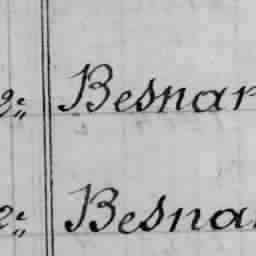 e:„ Besnar
e:„ Besnar